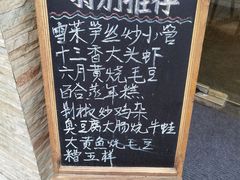 雪菜笋丝炒小管
十三香大头虾
六月黄烧毛豆
百合蒸年糕
剁椒炒鸡杂
臭豆腐大肠烧牛蛙
大黄鱼烧毛豆
糟五样